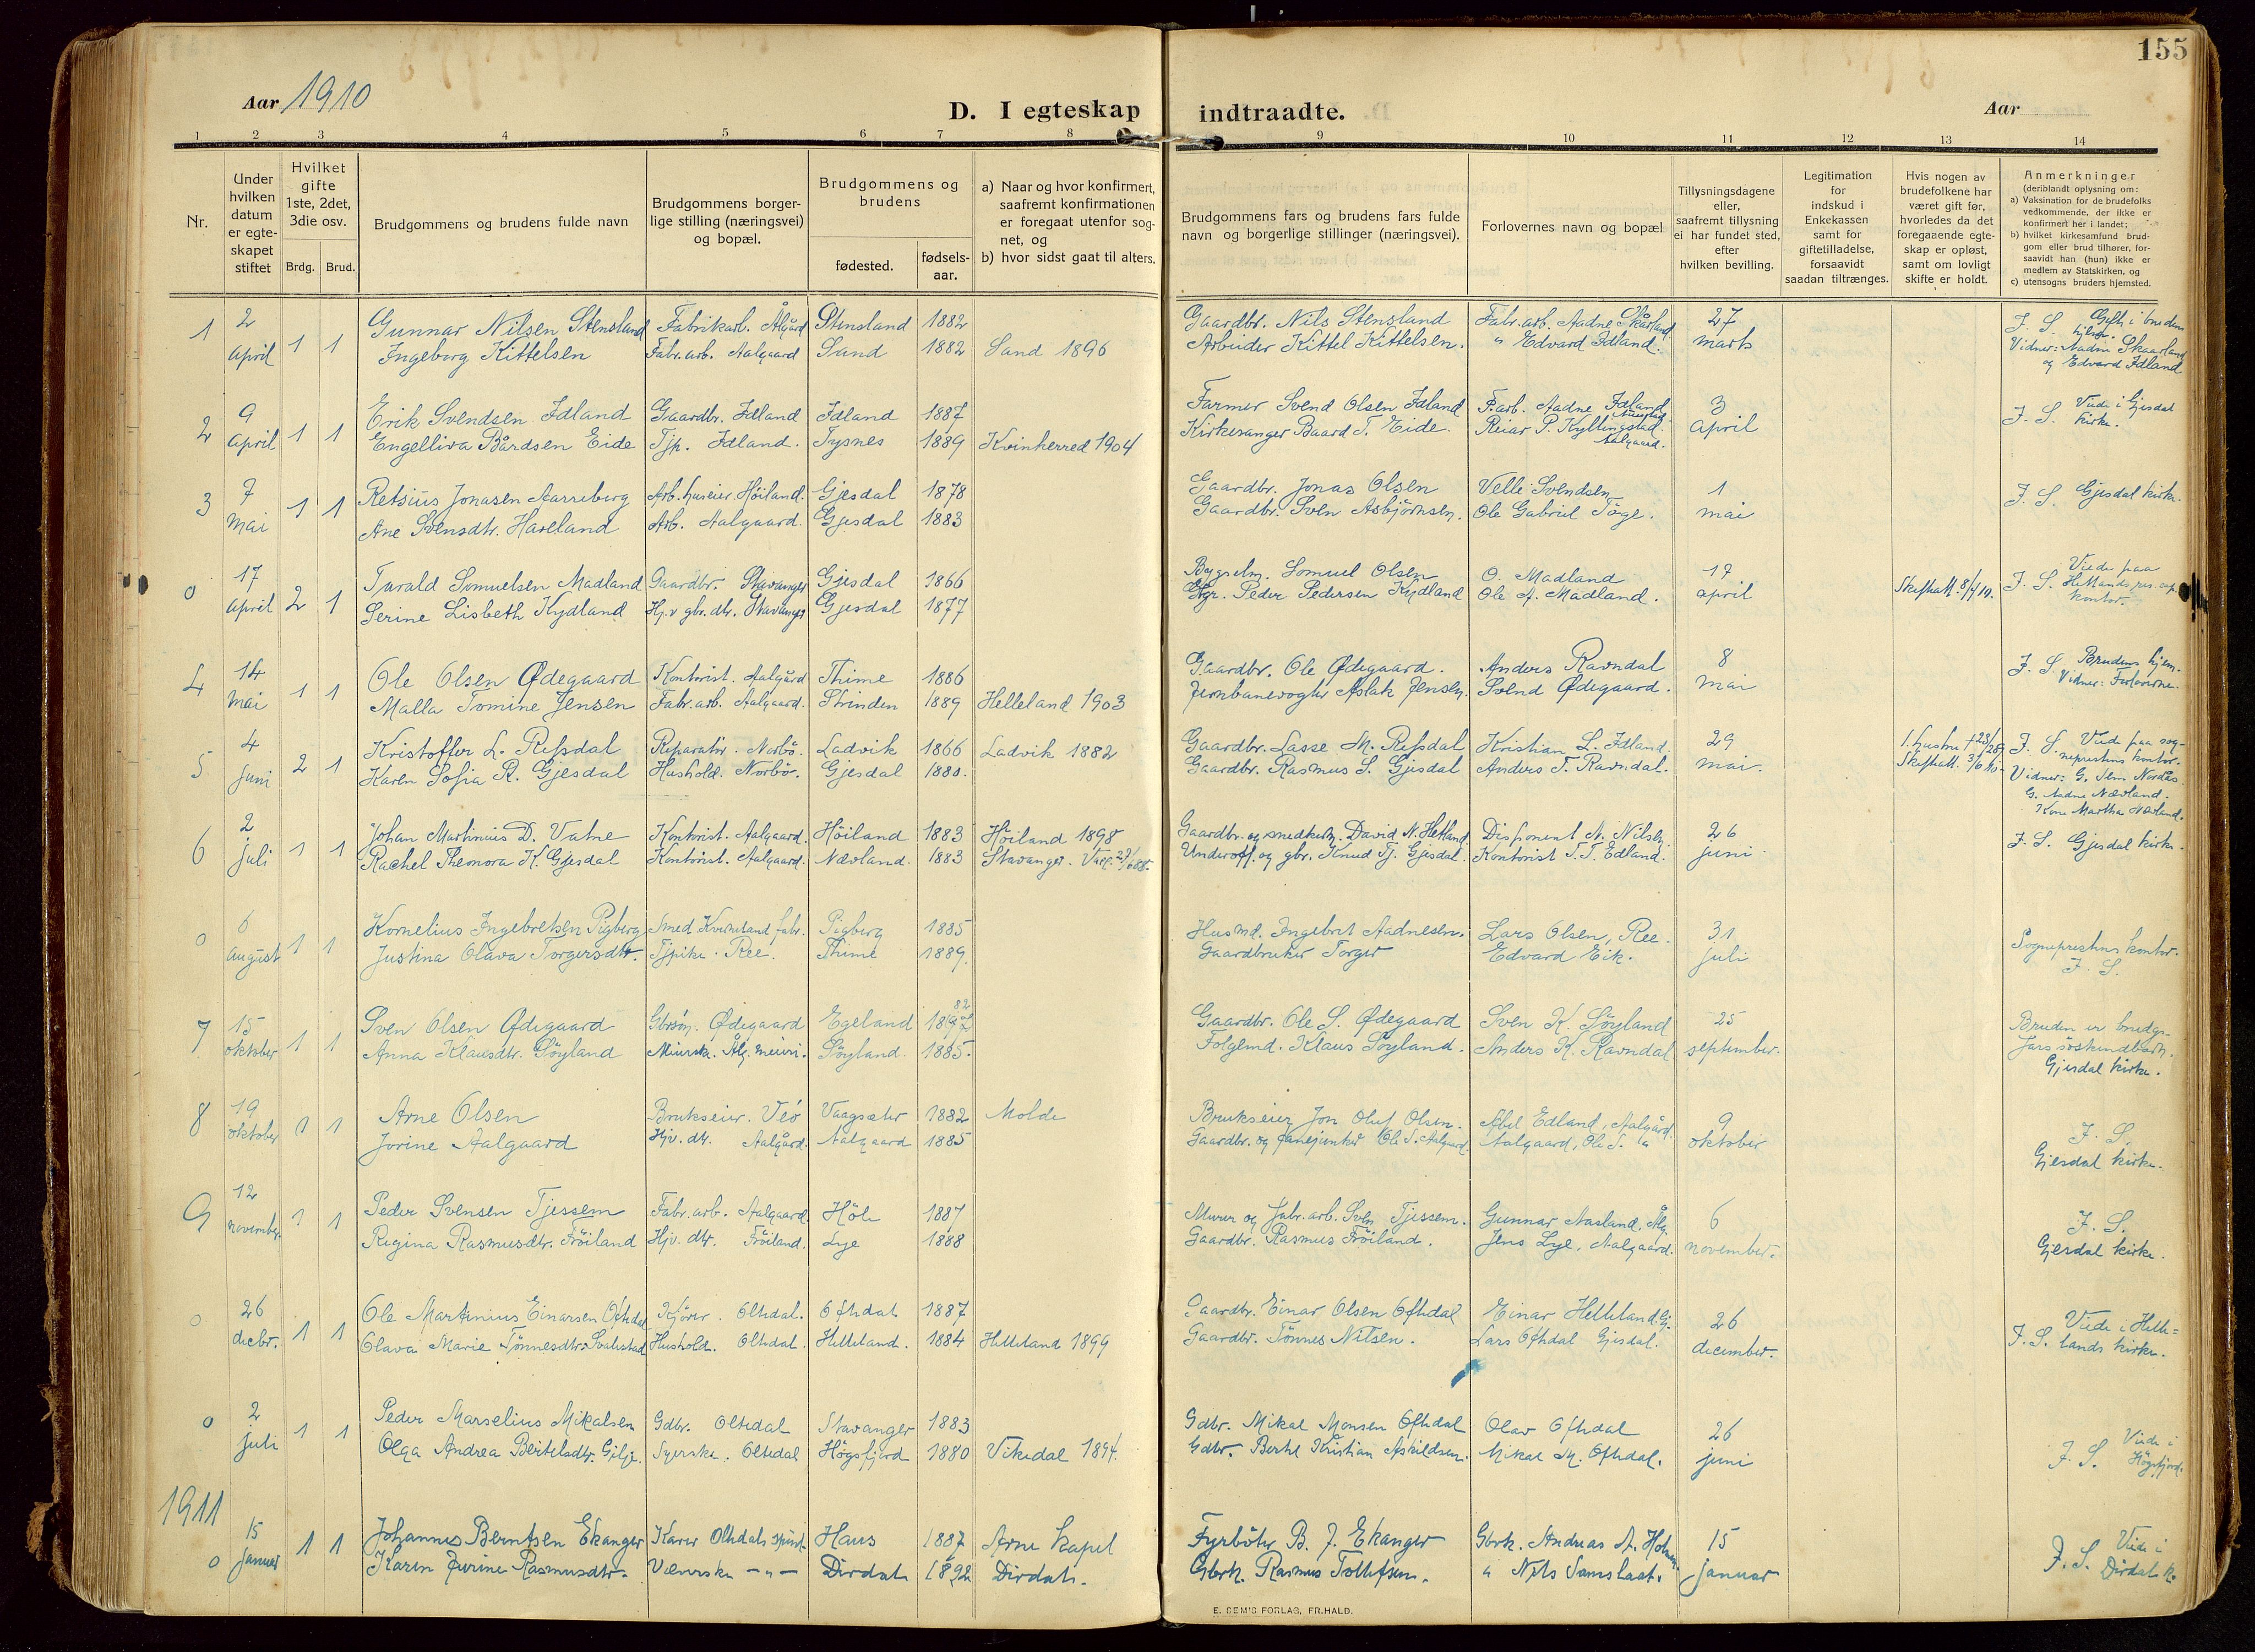 155
Aar 1910
D. I egteskap indtraadte.
Aar
1 2 3 4 5 6 7 8 9 10 11 12 13 14
Nr.
Under hvilken datum er egteskapet stiftet
Hvilket gifte 1ste, 2det, 3die osv.
Brdg. Brud.
Brudgommens og brudens fulde navn
Brudgommens borgerlige stilling (næringsvei) og bopæl.
Brudgommens og brudens
fødested.
fødselsaar.
a) Naar og hvor konfirmert, saafremt konfirmationen er foregaat utenfor sognet, og
b) hvor sidst gaat til alters.
Brudgommens fars og brudens fars fulde navn og borgerlige stillinger (næringsvei).
Forlovernes navn og bopæl
Tillysningsdagene eller, saafremt tillysning ei har fundet sted, efter hvilken bevilling.
Legitimation for indskud i Enkekassen samt for giftetilladelse, forsaavidt saadan tiltrænges.
Hvis nogen av brudefolkene har været gift før, hvorledes da det foregaaende egteskap er opløst, samt om lovligt skifte er holdt.
Anmerkninger
(deriblandt oplysning om:
a) Vaksination for de brudefolks vedkommende, der ikke er konfirmert her i landet;
b) hvilket kirkesamfund brudgom eller brud tilhører, forsaavidt han (hun) ikke er medlem av Statskirken, og
c) utensogns bruders hjemsted.
1 2 april 1 1 Gunnar Nilsen Stensland Fabrikarb. Ålgård Stensland 1882 Gaardbr. Nils Stensland Fabr. arb. Aadne Skårland 27 marts J. S. Gift i brudens hjem.
Ingeborg Kittelsen Fabr. arb. Aalgaard Sand 1882 Sand 1896 Arbeider Kittel Kittelsen. " Edvard Idland. Vidner: Aadne Skaarland og Edvard Idland
2 9 april 1 1 Erik Svendsen Idland Gaardbr. Idland Idland 1887 Farmer Svend Olsen Idland F. arb. Aadne Idland 3 april J. S. Viede i Gjesdal kirke.
Engelliva Bårdsen Eide Tjp. Idland. Tysnes 1889 Kvinherred 1904 Kirkesanger Baard T. Eide. Reiar P. Kyllingstad. Aalgaard.
3 7 mai 1 1 Retsius Jonasen Aarreberg Arb. huseier. Høiland. Gjesdal 1878 Gaardbr. Jonas Olsen Velle Svendsen 1 mai J. S. Gjesdal kirke.
Ane Svensdtr. Haveland Arb. Aalgaard. Gjesdal 1883 Gaardbr. Sven Asbjørnsen. Ole Gabriel Tøge.
0 17 april 2 1 Tarald Somuelsen Madland Gaardbr. Stavanger Gjesdal 1866 Bygselm. Somuel Olsen O. Madland 17 april Skifteatt. 8/4 10. J. S. Viede paa Hetlands res. cap. kontor.
Serine Lisbeth Kydland Hj.v. gbr. dtr. Stavanger Gjesdal 1877 Gbr. Peder Pedersen Kydland Ole A. Madland.
4 14 mai 1 1 Ole Olsen Ødegaard Kontorist. Aalgård Thime 1886 Gaardbr. Ole Ødegaard. Anders Ravndal 8 mai J. S. Brudens hjem.
Malla Tomine Jensen Fabr. arb. Aalgaard. Strinden 1889 Helleland 1903 Jernbanevogter Aslak Jensen. Svend Ødegaard. Vidner: Forloverne.
5 4 juni 2 1 Kristoffer L. Refsdal Reparatør. Norbø. Ladvik 1866 Ladvik 1882 Gaardbr. Lasse M. Refsdal Kristian L. Idland. 29 mai. 1. hustru † J. S. Viede paa sogneprestens kontor.
Karen Sofia R. Gjesdal Hushold. Norbø. Gjesdal 1880. Gaardbr. Rasmus S. Gjesdal Anders T. Ravndal. Skifteatt. 3/6 10. Vidner: G. Nordås. G. Aadne Nævland. Kone Martha Nævland.
6 2 juli 1 1 Johan Martinius D. Vatne Kontorist. Aalgaard. Høiland 1883 Høiland 1898 Gaardbr. og snedkerm. David N. Hetland Disponent N. Nilsen 26 juni J. S. Gjesdal kirke.
Rachel Theonora K. Gjesdal Kontorist. Aalgaard. Nævland. 1883 Stavanger. Underoff. og gbr. Knud Tj. Gjesdal. Kontorist T. T. Edland.
0 6 august 1 1 Kornelius Ingebretsen Pigberg Smed Kverneland fabr. Pigberg 1885 Husmd. Ingebret Aadnesen. Lars Olsen, Ree. 31 juli Sogneprestens kontor. J. S.
Justina Olava Torgersdtr. Tjpike. Ree. Thime 1889. Gaardbruker Torger Edvard Eik.
7 15 oktober 1 1 Sven Olsen Ødegaard Gbrsøn. Ødegaard Egeland 1882 Gaardbr. Ole S. Ødegaard Sven K. Søyland 25 september. Bruden er brudgs. fars søskendbarn.
Anna Klausdtr. Søyland Meierske. Ålg. meieri. Søyland. 1885. Folgemd. Klaus Søyland. Anders K. Ravndal Gjesdal kirke.
8 19 oktober 1 1 Arne Olsen Brukseier. Veø Vaagsæter 1882 Molde Brukseier Jon Oluf Olsen. Abel Edland, Aalgård. 9 oktober J. S.
Jorine Aalgaard Hjv. dtr. Aalgård. Aalgaard 1885 Gaardbr. og fanejunker Ole S. Aalgaard. Aalgaard, Ole S. " Gjesdal kirke.
9 12 november. 1 1 Peder Svensen Tjessem Fabr. arb. Aalgaard. Høle 1887 Murer og fabr. arb. Sven Tjessem. Gunnar Aasland, Ålg. 6 november. J. S.
Regina Rasmusdtr. Frøiland Hjv. dtr. Frøiland. Lye 1888 Gaardbr. Rasmus Frøiland. Jens Lye, Aalgaard. Gjesdal kirke.
0 26 decbr. 1 1 Ole Martinius Einarsen Oftedal Kjører. Oltedal. Oftedal 1887 Gaardbr. Einar Olsen Oftedal Einar Helleland Gj. 26 december. Viede i Helle=
Olava Marie Tønnesdtr. Svalestad Hushold. Oltedal. Helleland. 1884 Helleland 1899 Gaardbr. Tønnes Nilsen. Lars Oftedal Gjesdal. J. S. lands kirke.
0 2 juli 1 1 Peder Marselius Mikalsen Gdbr. Oltedal Stavanger 1883 Gdbr. Mikal Monsen Oftedal Olav Oftedal 26 juni J. S. Viede i Høgsfjord.
Olga Andrea Bertelsdtr. Gilje. Syerske. Oltedal Høgsfjord 1880 Vikedal 1894. Gdbr. Bertel Kristian Askildsen. Mikal M. Oftedal.
1911
0 15 januar 1 1 Johannes Berntsen Ekanger Karer Oltedals spind. Haus 1887 Arne kapel Fyrbøter B. J. Ekanger Gbrk. Andreas A. 15 januar J. S. Viede i Dirdal k.
Karen Jurine Rasmusdtr. Væverske - " - Dirdal 1892 Dirdal. Gbrk. Rasmus Tollefsen. " Nils Samslaat.
E. SEM'S FORLAG, FR.HALD.